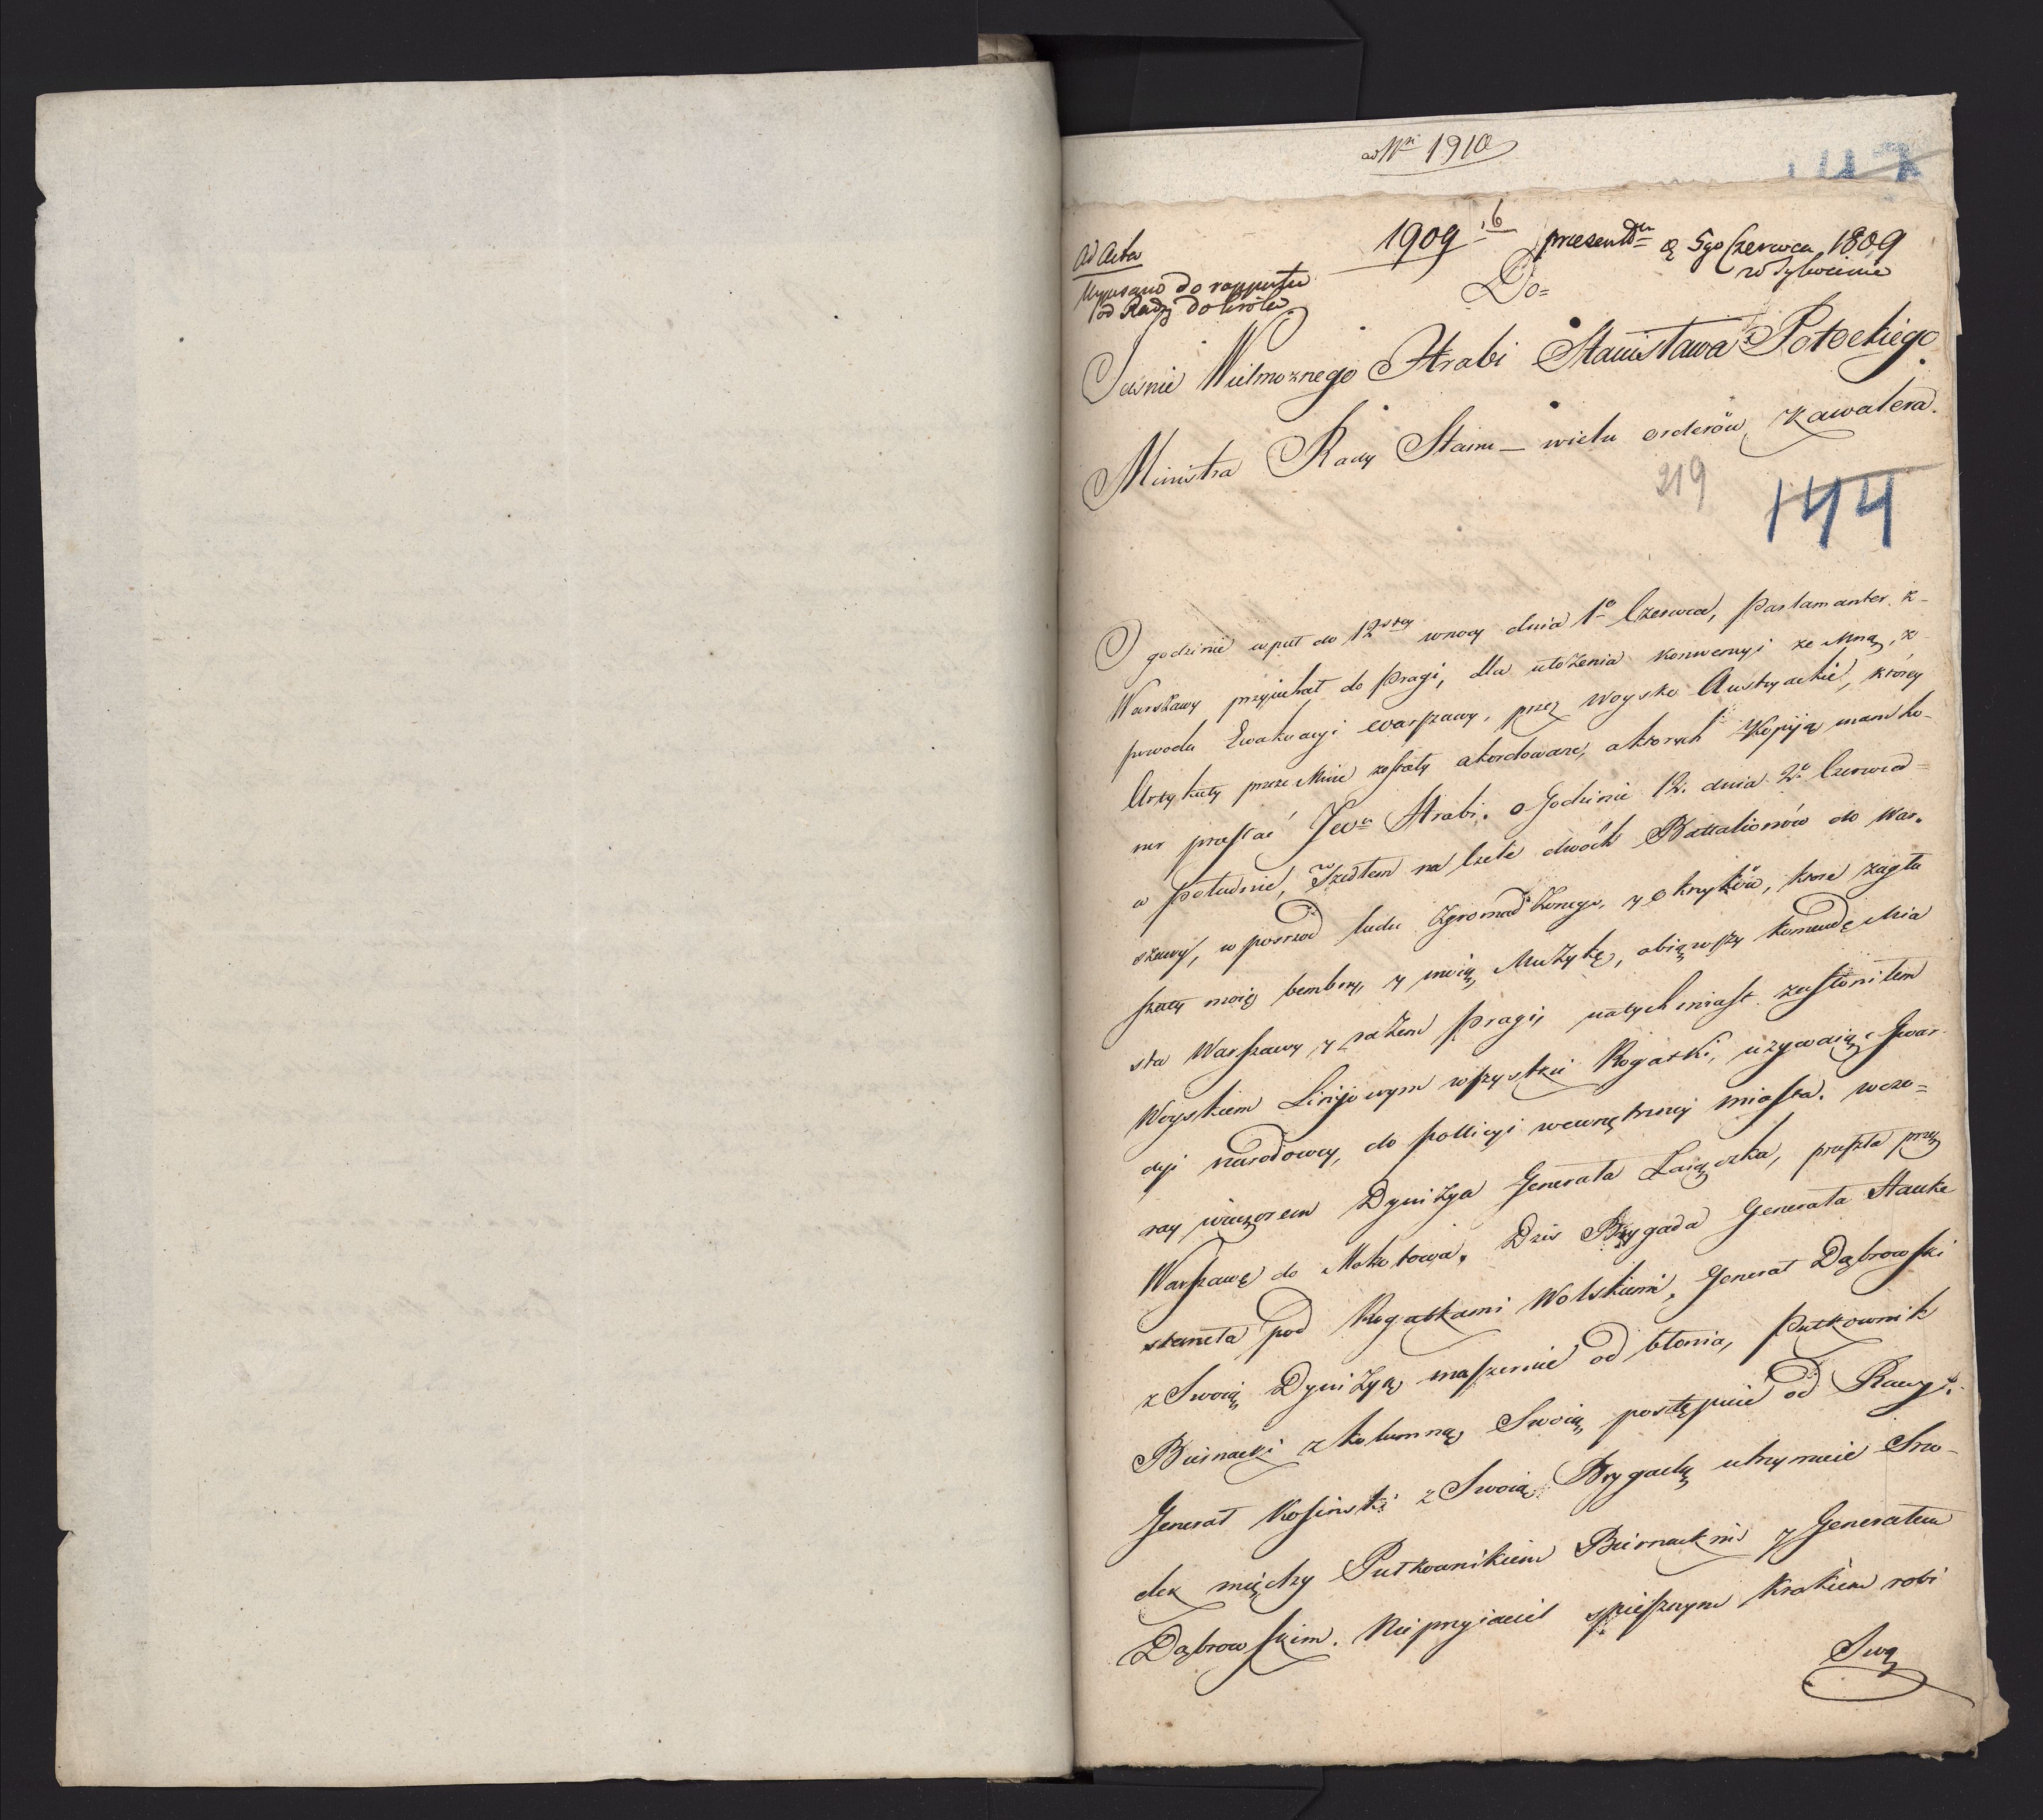 ad Nri 1910
117
1909 b
presentm d 5go Czerwca 1809
w Tykocinie
Ad Acta
Wypisano do rapportu
od Rady do Króla
Do=
Jaśnie Wielmoznego Hrabi Stanisława Potockiego
Ministra Rady Stanu – wielu orderów Kawalera.
219
144
O godzinie wpuł do 12stey wnocy dnia 1o Czerwca, Parlamanter z-
Warszawy przyiechał do Pragi, dla ułożenia Konwencyi ze Mną, z
powodu Ewakuacyi Warszawy, przez woysko Austryackie, którey
Artykuły przeze Mnie zostały akordowane, aktorych Kopiją mam ho-
nor przesłać JWu Hrabi. o Godzinie 12. dnia 2o Czerwca=
w południe, Szedłem na Czele dwóch Battalionów do War-
szawy, w posrzod ludu Zgromadzonego, y okrzyków, ktore zagłu
szały moię bembny, y moią Muzykę, obiąwszy Komendę Mia
sta Warszawy y razem Pragi, natychmiast zasłoniłem
Woyskiem Liniiowym wszystkie Rogatki, uzywaiąc Gwar
dyi Narodowey, do pollicyi wewnętrzney miasta. wczo=
ray wieczorem Dywizya Generała Zaiączka, przeszła przez
Warszawę do Mokotowa. Dzis Brygada Generała Hauke
staneła pod Rogatkami Wolskiemi, Generał Dąbrowski
z Swoią Dywizyą maszeruie od błonia, Pułkownik
Biernacki z kolumną Swoią postępuie od Rawy i
Generał Kosinski z Swoią Brygadą utrzymuie Srzo-
dek między Pułkownikiem Biernackim y Generałem
Dąbrowskim. Nieprzyiaciel spiesznym Krokiem robi
Swą